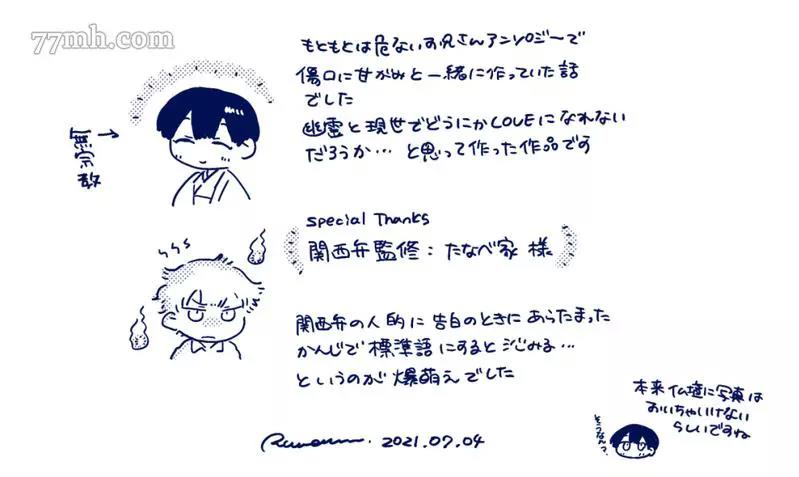 77mh.com
もともとは危ないお兄さんアンソロジーで
傷口に甘がみと一緒に作っていた話
でした
幽霊と現世でどうにかLOVEになれない
だろうか… と思って作った作品です
無宗教
special Thanks
関西弁監修：たなべ家 様
関西弁の人的に 告白のときに あらたまった
かんじで 標準語にすると 沁みる…
というのが 爆萌えでした
2021.07.04
本来仏壇に写真は
おいちゃいけない
らしいですね
そうなん？